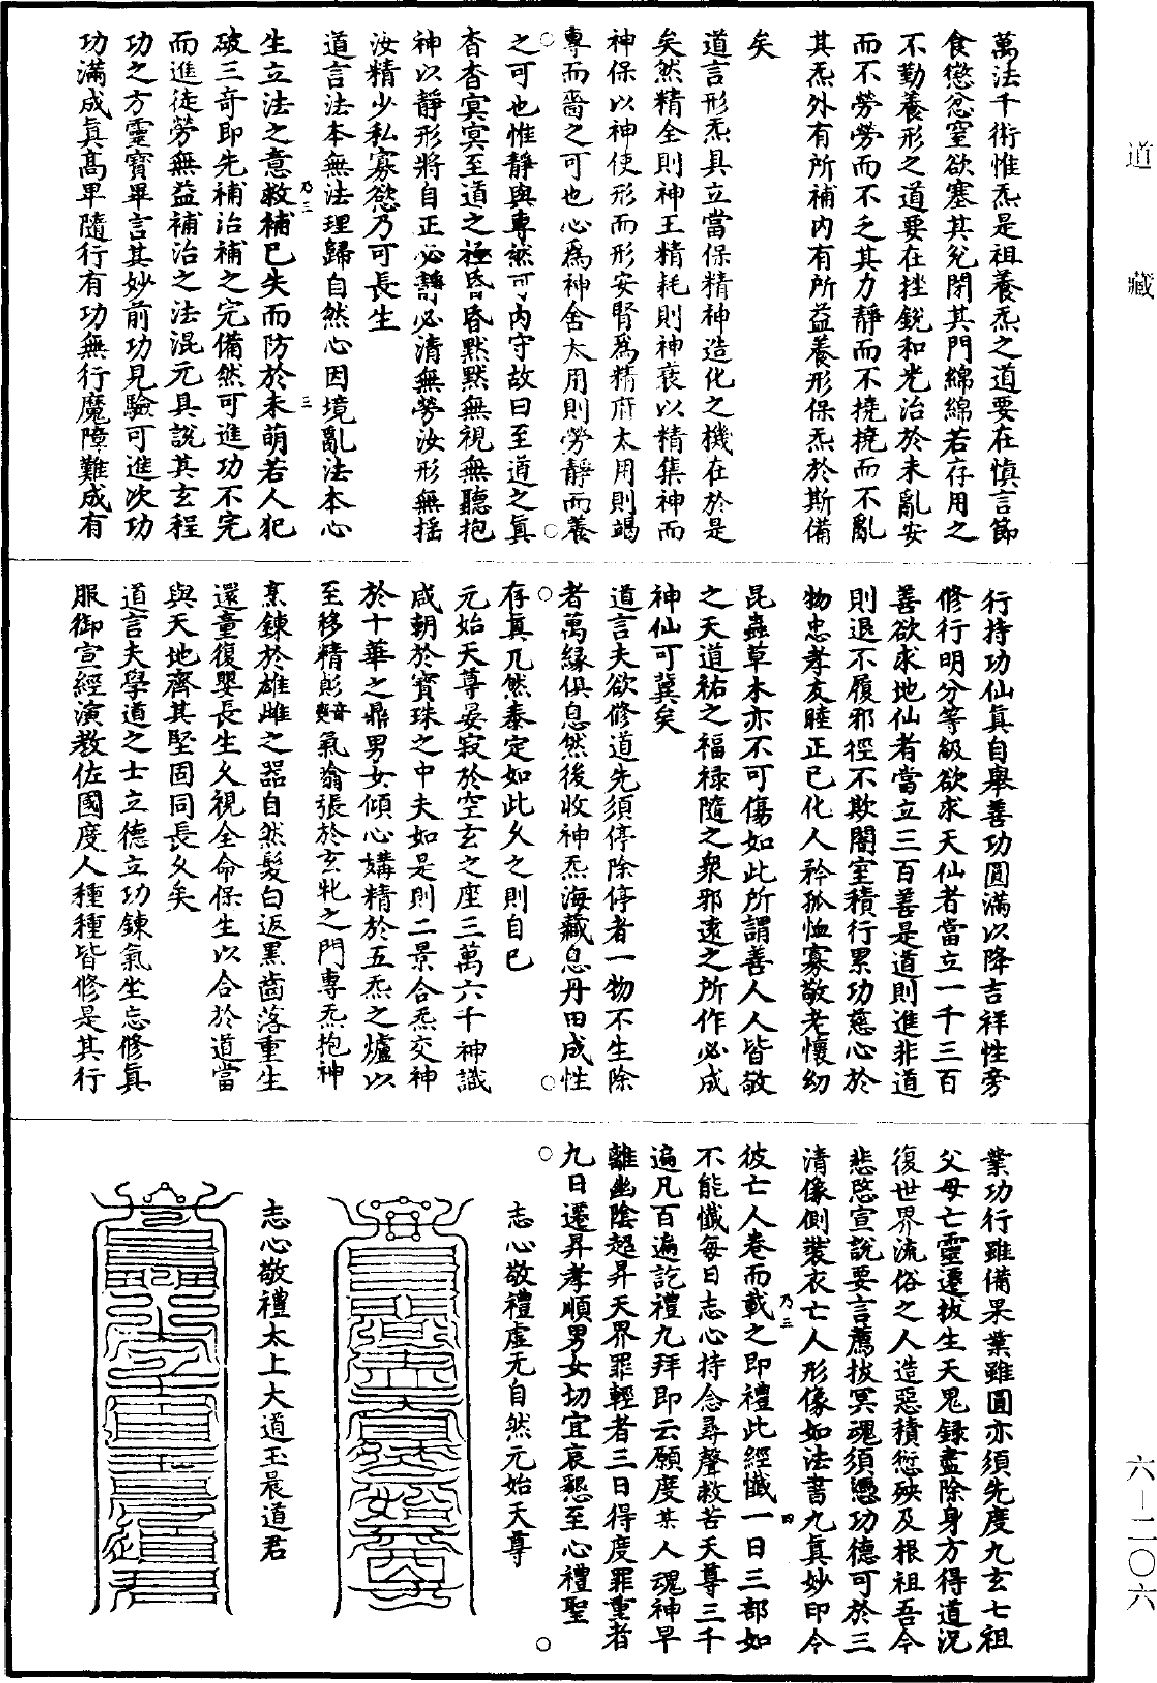 道藏
萬法千術惟炁是祖養炁之道要在慎言節
食懲忿窒欲塞其兌閉其門綿綿若存用之
不勤養形之道要在挫銳和光治於未亂安
而不勞勞而不乏其力靜而不撓撓而不亂
其炁外有所補內有所益養形保炁於斯備
矣
道言形炁具立當保精神造化之機在於是
矣然精全則神王精耗則神衰以精集神而
神保以神使形而形安腎為精府太用則竭
專而嗇之可也心為神舍太用則勞靜而養
之可也惟靜與專然可內守故曰至道之真
杳杳冥冥至道之極昏昏默默無視無聽抱
神以靜形將自正必靜必清無勞汝形無摇
汝精少私寡慾乃可長生
道言法本無法理歸自然心因境亂法本心
生立法之意救補已失而防於未萌若人犯
乃二
三
破三奇即先補治補之完備然可進功不完
而進徒勞無益補治之法混元具說其玄程
功之方靈寶畢言其妙前功見驗可進次功
功滿成真高畢隨行有功無行魔障難成有
行持功仙真自舉善功圓滿以降吉祥性旁
修行明分等級欲求天仙者當立一千三百
善欲求地仙者當立三百善是道則進非道
則退不履邪徑不欺闇室積行累功慈心於
物忠孝友睦正已化人矜孤恤寡敬老懷幼
昆蟲草木亦不可傷如此所謂善人人皆敬
之天道祐之福祿隨之衆邪遠之所作必成
神仙可冀矣
道言夫欲修道先須停除停者一物不生除
者萬緣俱息然後收神炁海藏息丹田成性
存真兀然泰定如此久之則自已
元始天尊晏寂於空玄之座三萬六千神識
咸朝於寶珠之中夫如是則二景合炁交神
於十華之鼎男女傾心媾精於五炁之爐以
至移精彭音氣翕張於玄牝之門專炁抱神
烹鍊於雄雌之器自然髮白返黑齒落重生
還童復嬰長生久視全命保生以合於道當
與天地齊其堅固同長久矣
道言夫學道之士立德立功鍊氣生忘修真
服御宣經演教佐國度人種種皆修是其行
業功行雖備果業雖圓亦須先度九玄七祖
父母亡靈遷拔生天鬼録盡除身方得道況
復世界流俗之人造惡積愆殃及根祖吾今
悲愍宣說要言薦拔冥魂須憑功德可於三
清像側裝衣亡人形像如法書九真妙印令
彼亡人卷而載之即禮此經懺一日三部如
乃三
四
不能懺每日志心持念尋聲救苦天尊三千
遍凡百遍訖禮九拜即云願度某人魂神早
離幽陰超昇天界罪輕者三日得度罪重者
九日遷昇孝順男女切宜哀懇至心禮聖
志心敬禮虛无自然元始天尊
志心敬禮太上大道玉晨道君
六—二〇六